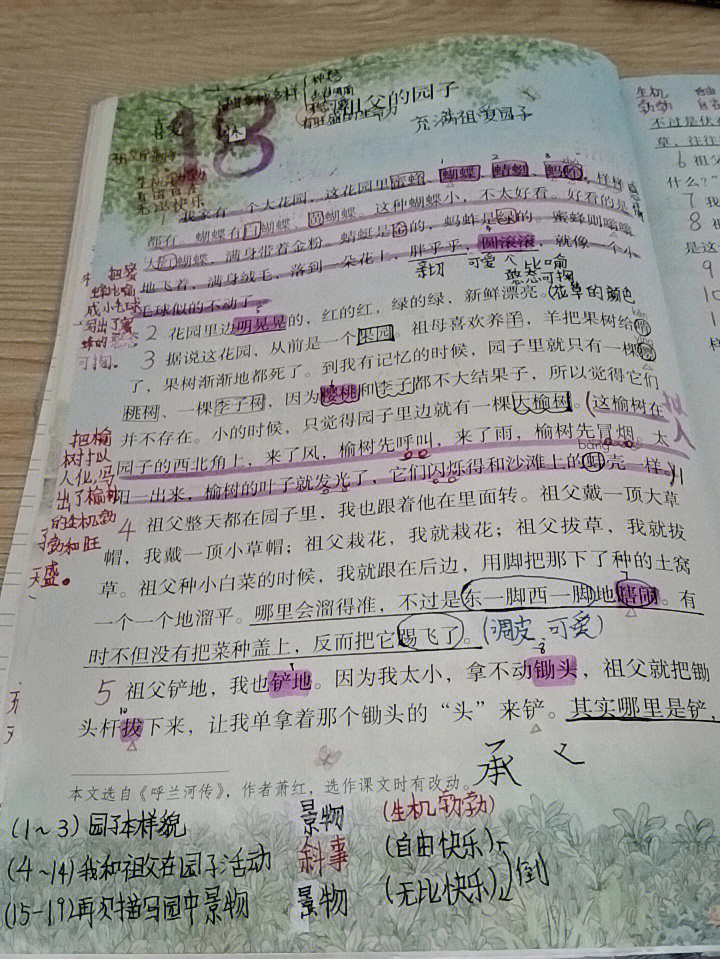 18
祖父的园子
充满祖父园子
我家有一个大花园,这花园里蜜蜂、蝴蝶、蜻蜓、蚂蚱,样样
都有。蝴蝶有白蝴蝶、黄蝴蝶。这种蝴蝶小,不太好看。好看的是
大红蝴蝶,满身带着金粉。蜻蜓是金的,蚂蚱是绿的。蜜蜂则嗡嗡
地飞着,满身绒毛,落到一朵花上,胖乎乎,圆滚滚,就像一个小
毛球似的不动了。
亲切 可爱 比喻
憨态可掬
把蜜
蜂比喻
成小毛球
写出了蜜
蜂的憨态
可掬。
2 花园里边明晃晃的,红的红,绿的绿,新鲜漂亮。(花草的颜色
3 据说这花园,从前是一个果园。祖母喜欢养羊,羊把果树给啃
了,果树渐渐地都死了。到我有记忆的时候,园子里就只有一棵樱
桃树、一棵李子树,因为樱桃和李子都不大结果子,所以觉得它们
并不存在。小的时候,只觉得园子里边就有一棵大榆树。(这榆树在
园子的西北角上,来了风,榆树先呼叫,来了雨,榆树先冒烟。太
阳一出来,榆树的叶子就发光了,它们闪烁得和沙滩上的蚌壳一样。)
拟人
把榆
树拟
人化,写
出了榆树
的生机勃
勃和旺
盛。
4 祖父整天都在园子里,我也跟着他在里面转。祖父戴一顶大草
帽,我戴一顶小草帽;祖父栽花,我就栽花;祖父拔草,我就拔
草。祖父种小白菜的时候,我就跟在后边,用脚把那下了种的土窝
一个一个地溜平。哪里会溜得准,不过是东一脚西一脚地瞎闹。有
时不但没有把菜种盖上,反而把它踢飞了。(调皮、可爱)
5 祖父铲地,我也铲地。因为我太小,拿不动锄头,祖父就把锄
头杆拔下来,让我单拿着那个锄头的“头”来铲。其实哪里是铲,
本文选自《呼兰河传》,作者萧红,选作课文时有改动。
承
(1~3) 园子本样貌 景物 (生机勃勃)
(4~14)我和祖父在园子活动 叙事 (自由快乐)
(15-19)再次描写园中景物 景物 (无比快乐) 倒
生机
勃勃
6 祖父
什么?”
7 我
8 祖
是这
9
10